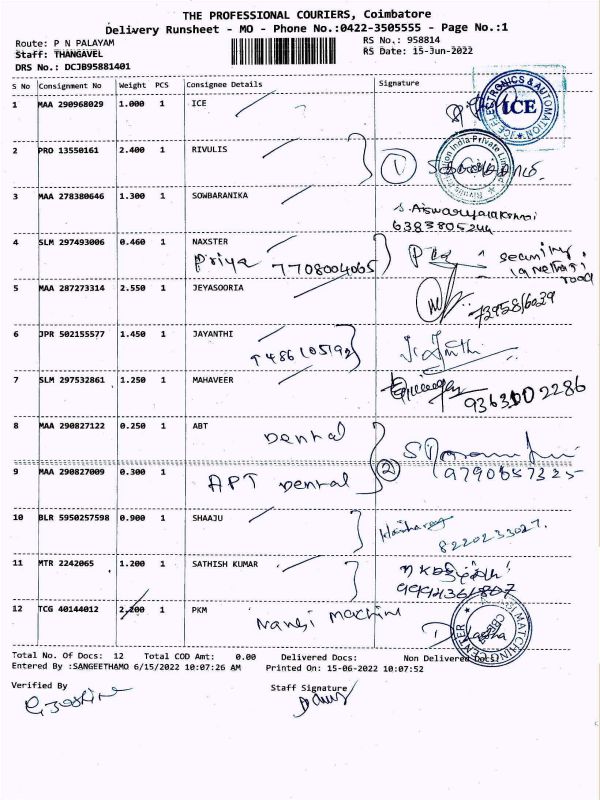 THE PROFESSIONAL COURIERS, Coimbatore
Delivery Runsheet - MO - Phone No.:0422-3505555 - Page No.:1
Route: P N PALAYAM RS No.: 958814
Staff: THANGAVEL RS Date: 15-Jun-2022
DRS No.: DCJB95881401
S No Consignment No Weight PCS Consignee Details Signature
1 MAA 290968029 1.000 1 ICE
ICE ELECTRONICS & AUTOMATION
ICE
2 PRO 13550161 2.400 1 RIVULIS 1
India Private Limited
3 MAA 278380646 1.300 1 SOWBARANIKA
S. Aiswaryalakshmi
6383805244
4 SLM 297493006 0.460 1 NAXSTER
Priya 7708004065
security
5 MAA 287273314 2.550 1 JEYASOORIA
7395816039
6 JPR 502155577 1.450 1 JAYANTHI
7 SLM 297532861 1.250 1 MAHAVEER
8 MAA 290827122 0.250 1 ABT Dental
9 MAA 290827009 0.300 1 APT Dental 2 9790657325
10 BLR 5950257598 0.900 1 SHAAJU
8220233027.
11 MTR 2242065 1.200 1 SATHISH KUMAR
12 TCG 40144012 2.200 1 PKM
machine
Total No. Of Docs: 12 Total COD Amt: 0.00 Delivered Docs: Non Delivered Docs:
Entered By :SANGEETHAMO 6/15/2022 10:07:26 AM Printed On: 15-06-2022 10:07:52
Verified By Staff Signature